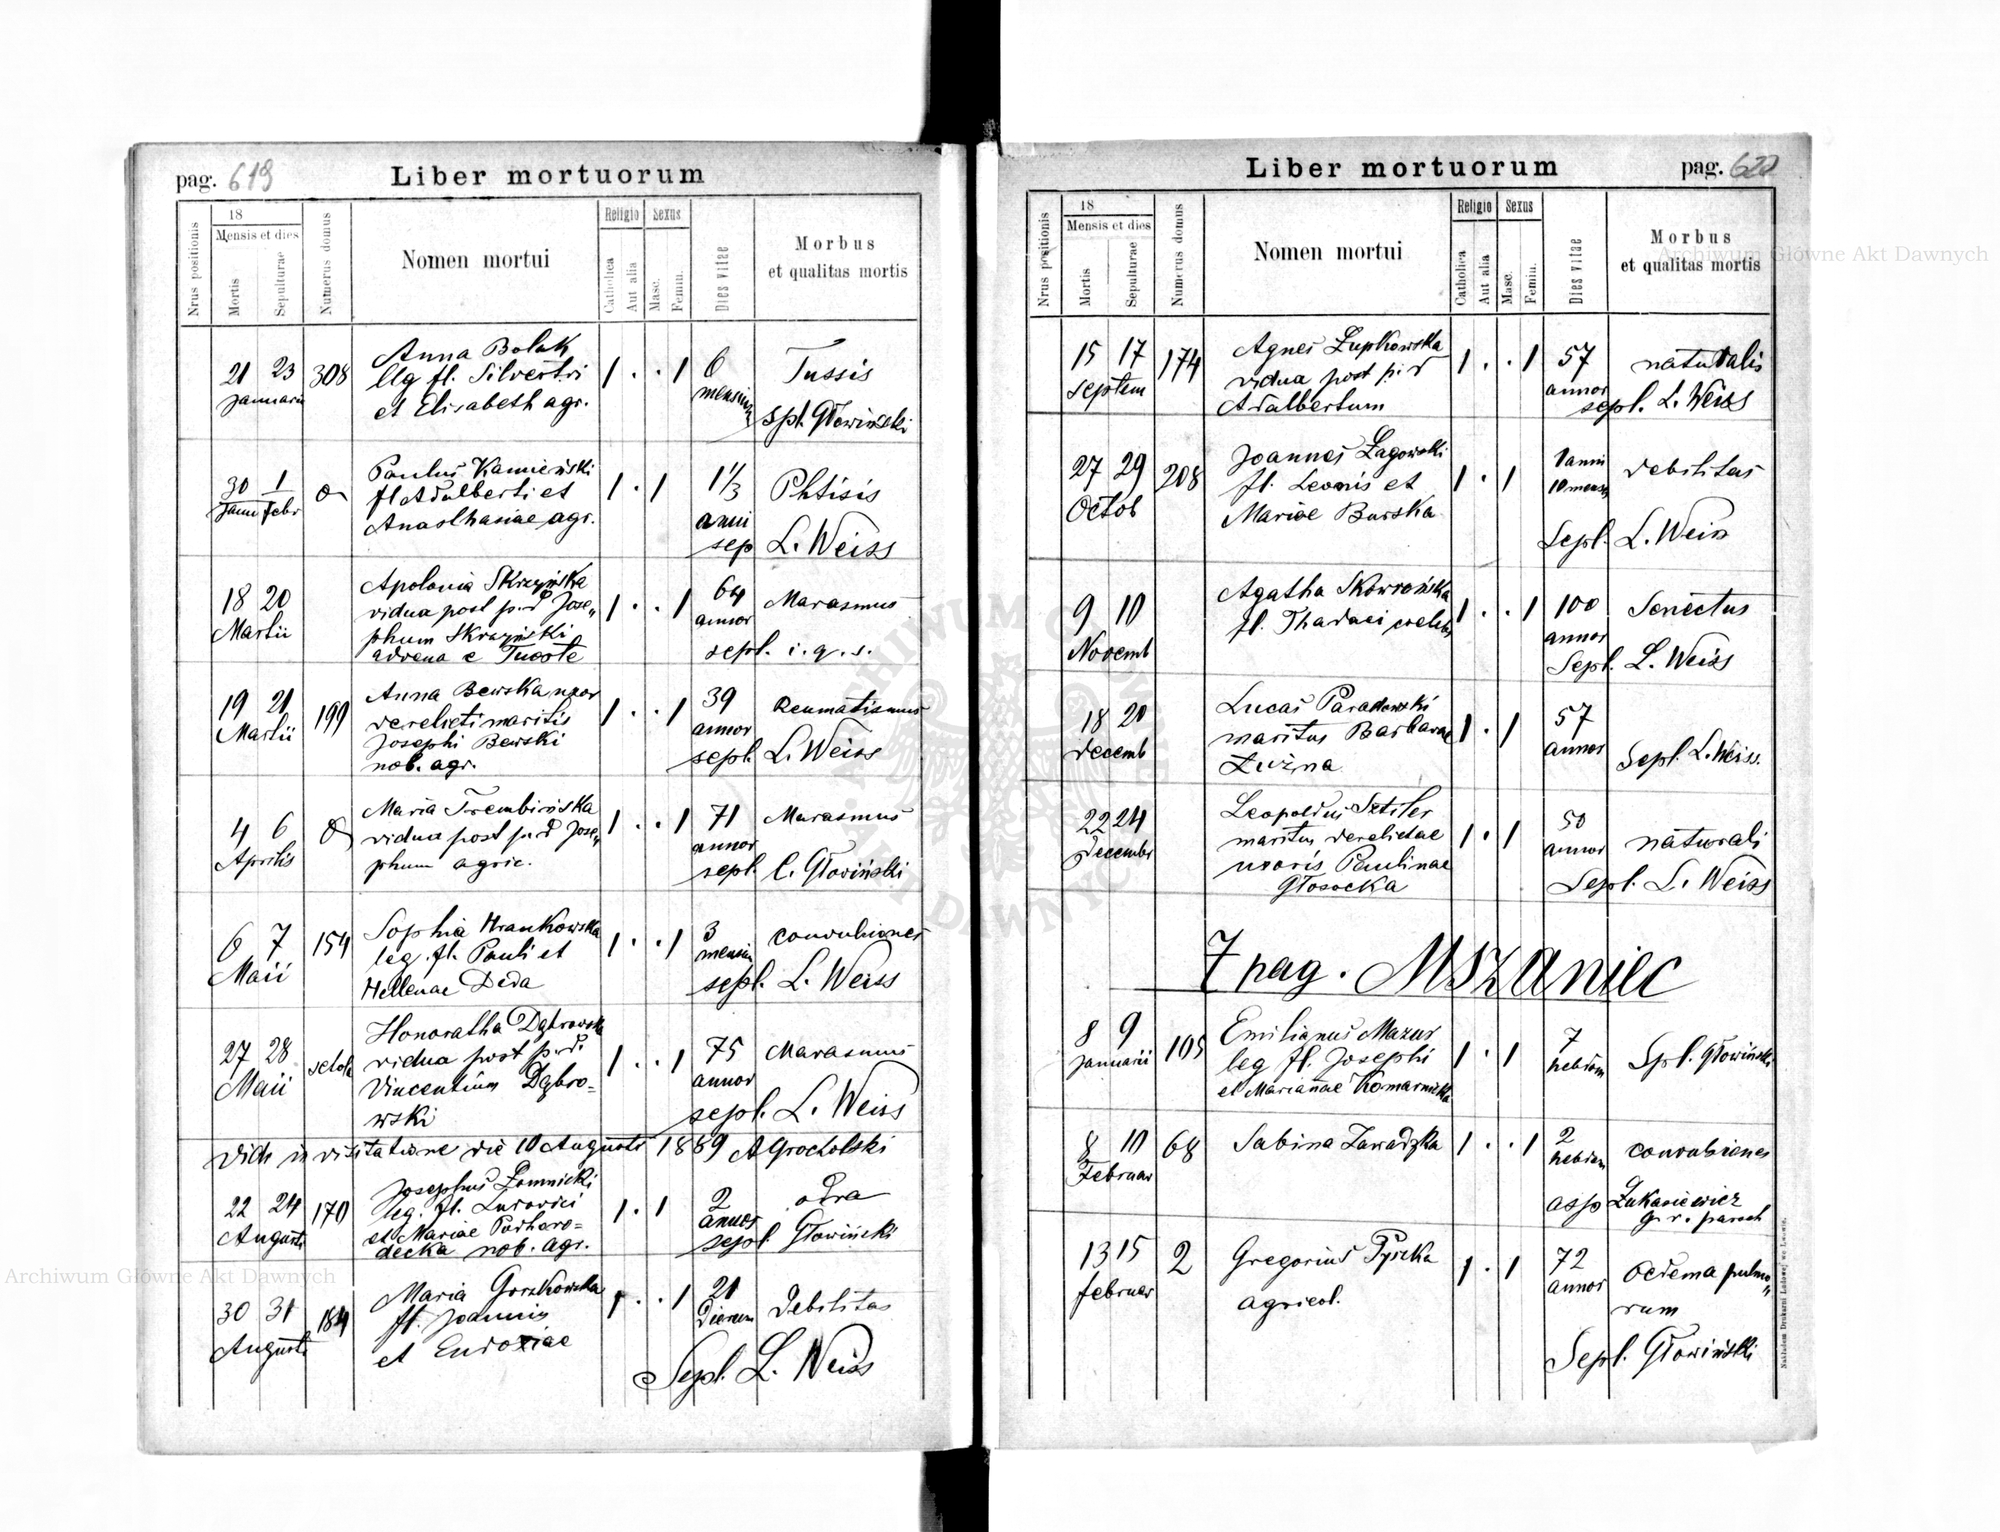 pag. 619 Liber mortuorum
Nrus positionis
18
Mensis et dies
Mortis
Sepulturae
Numerus domus
Nomen mortui
Religio
Catholica
Aut alia
Sexus
Masc.
Femin.
Dies vitae
Morbus
et qualitas mortis
21 23 308 Anna Bolak 1 . . 1 6 Tussis
Januarii leg fl. Silvestri mensium
et Elisabeth agr. spl. Głowiński
30 1 0 Paulus Kamieński 1 . 1 1 1/3 Phtisis
Janu Febr fl Adalberti et anni
Anasthasiae agr. sep L. Weiss
18 20 Apolonia Skrzyńska 1 . . 1 64 Marasmus
Martii vidua post p. d Jose„ annor
phum Skrzyński sepl. i. q. s.
advena e Tuoste
19 21 199 Anna Bewska uxor 1 . . 1 39 Reumatismus
Martii derelicti maritis annor
Josephi Bewski sepl. L. Weiss
nob. agr.
4 6 0 Maria Trembińska 1 . . 1 71 Marasmus
Aprilis vidua post p. d Jose„ annor
phum agric. sepl. C. Głowiński
6 7 154 Sophia Hrankowska 1 . . 1 3 convulsiones
Maii leg. fl. Pauli et mensium
Hellenae Deda sepl. L. Weiss
27 28 Honoratha Dąbrowska 1 . . 1 75 Marasmus
Maii vidua post p. d. annor
Vincentium Dąbro- sepl. L. Weiss
wski
Vidi in visitatione die 10 Augusti 1889 A Grocholski
22 24 170 Josephus Łomnicki 1 . 1 2 odra
Augusti leg. fl. Ludovici annor
et Mariae Podhoro- sepl Głowiński
decka nob. agr.
30 31 184 Maria Gorzkowska 1 . . 1 21 Debilitas
Augusti fl. Joannis Dierum
et Eudoxiae
Sepl. L. Weiss
Liber mortuorum pag. 620
Nrus positionis
18
Mensis et dies
Mortis
Sepulturae
Numerus domus
Nomen mortui
Religio
Catholica
Aut alia
Sexus
Masc.
Femin.
Dies vitae
Morbus
et qualitas mortis
15 17 174 Agnes Łupkowska 1 . . 1 57 naturalis
Septem vidua post p: d annor
Adalbertum sepl. L. Weiss
27 29 208 Joannes Łagowski 1 . 1 1 anni debilitas
Octob fl. Leonis et 10 menses
Mariae Burska Sepl. L. Weiss
9 10 Agatha Skowrońska 1 . . 1 100 Senectus
Novemb fl. Thadaei coelebs annor
Sepl. L. Weiss
18 20 Lucas Paradowski 1 . 1 57
decemb maritus Barbarae annor
Zuźma Sepl. L. Weiss.
22 24 Leopoldus Sztiler 1 . 1 50 naturali
Decembr maritus derelictae annor
uxoris Paulinae Sepl. L. Weiss
Głosocka
7 pag. Mszaniec
8 9 105 Emilianus Mazur 1 . 1 7 Spl. Głowiński
Januarii leg fl. Josephi hebdom
et Mariannae Komarnicka
8 10 68 Sabina Zawadzka 1 . . 1 2 convulsiones
Februar hebdom
asp Łukasiewicz
g. r. paroch
13 15 2 Gregorius Pyszka 1 . 1 72 Oedema pulmo„
februar agricol. annor rum
Sepl. Głowiński
Nakładem Drukarni Ludowej we Lwowie.
Archiwum Główne Akt Dawnych
Archiwum Główne Akt Dawnych
ARCHIWUM GŁÓWNE AKT DAWNYCH